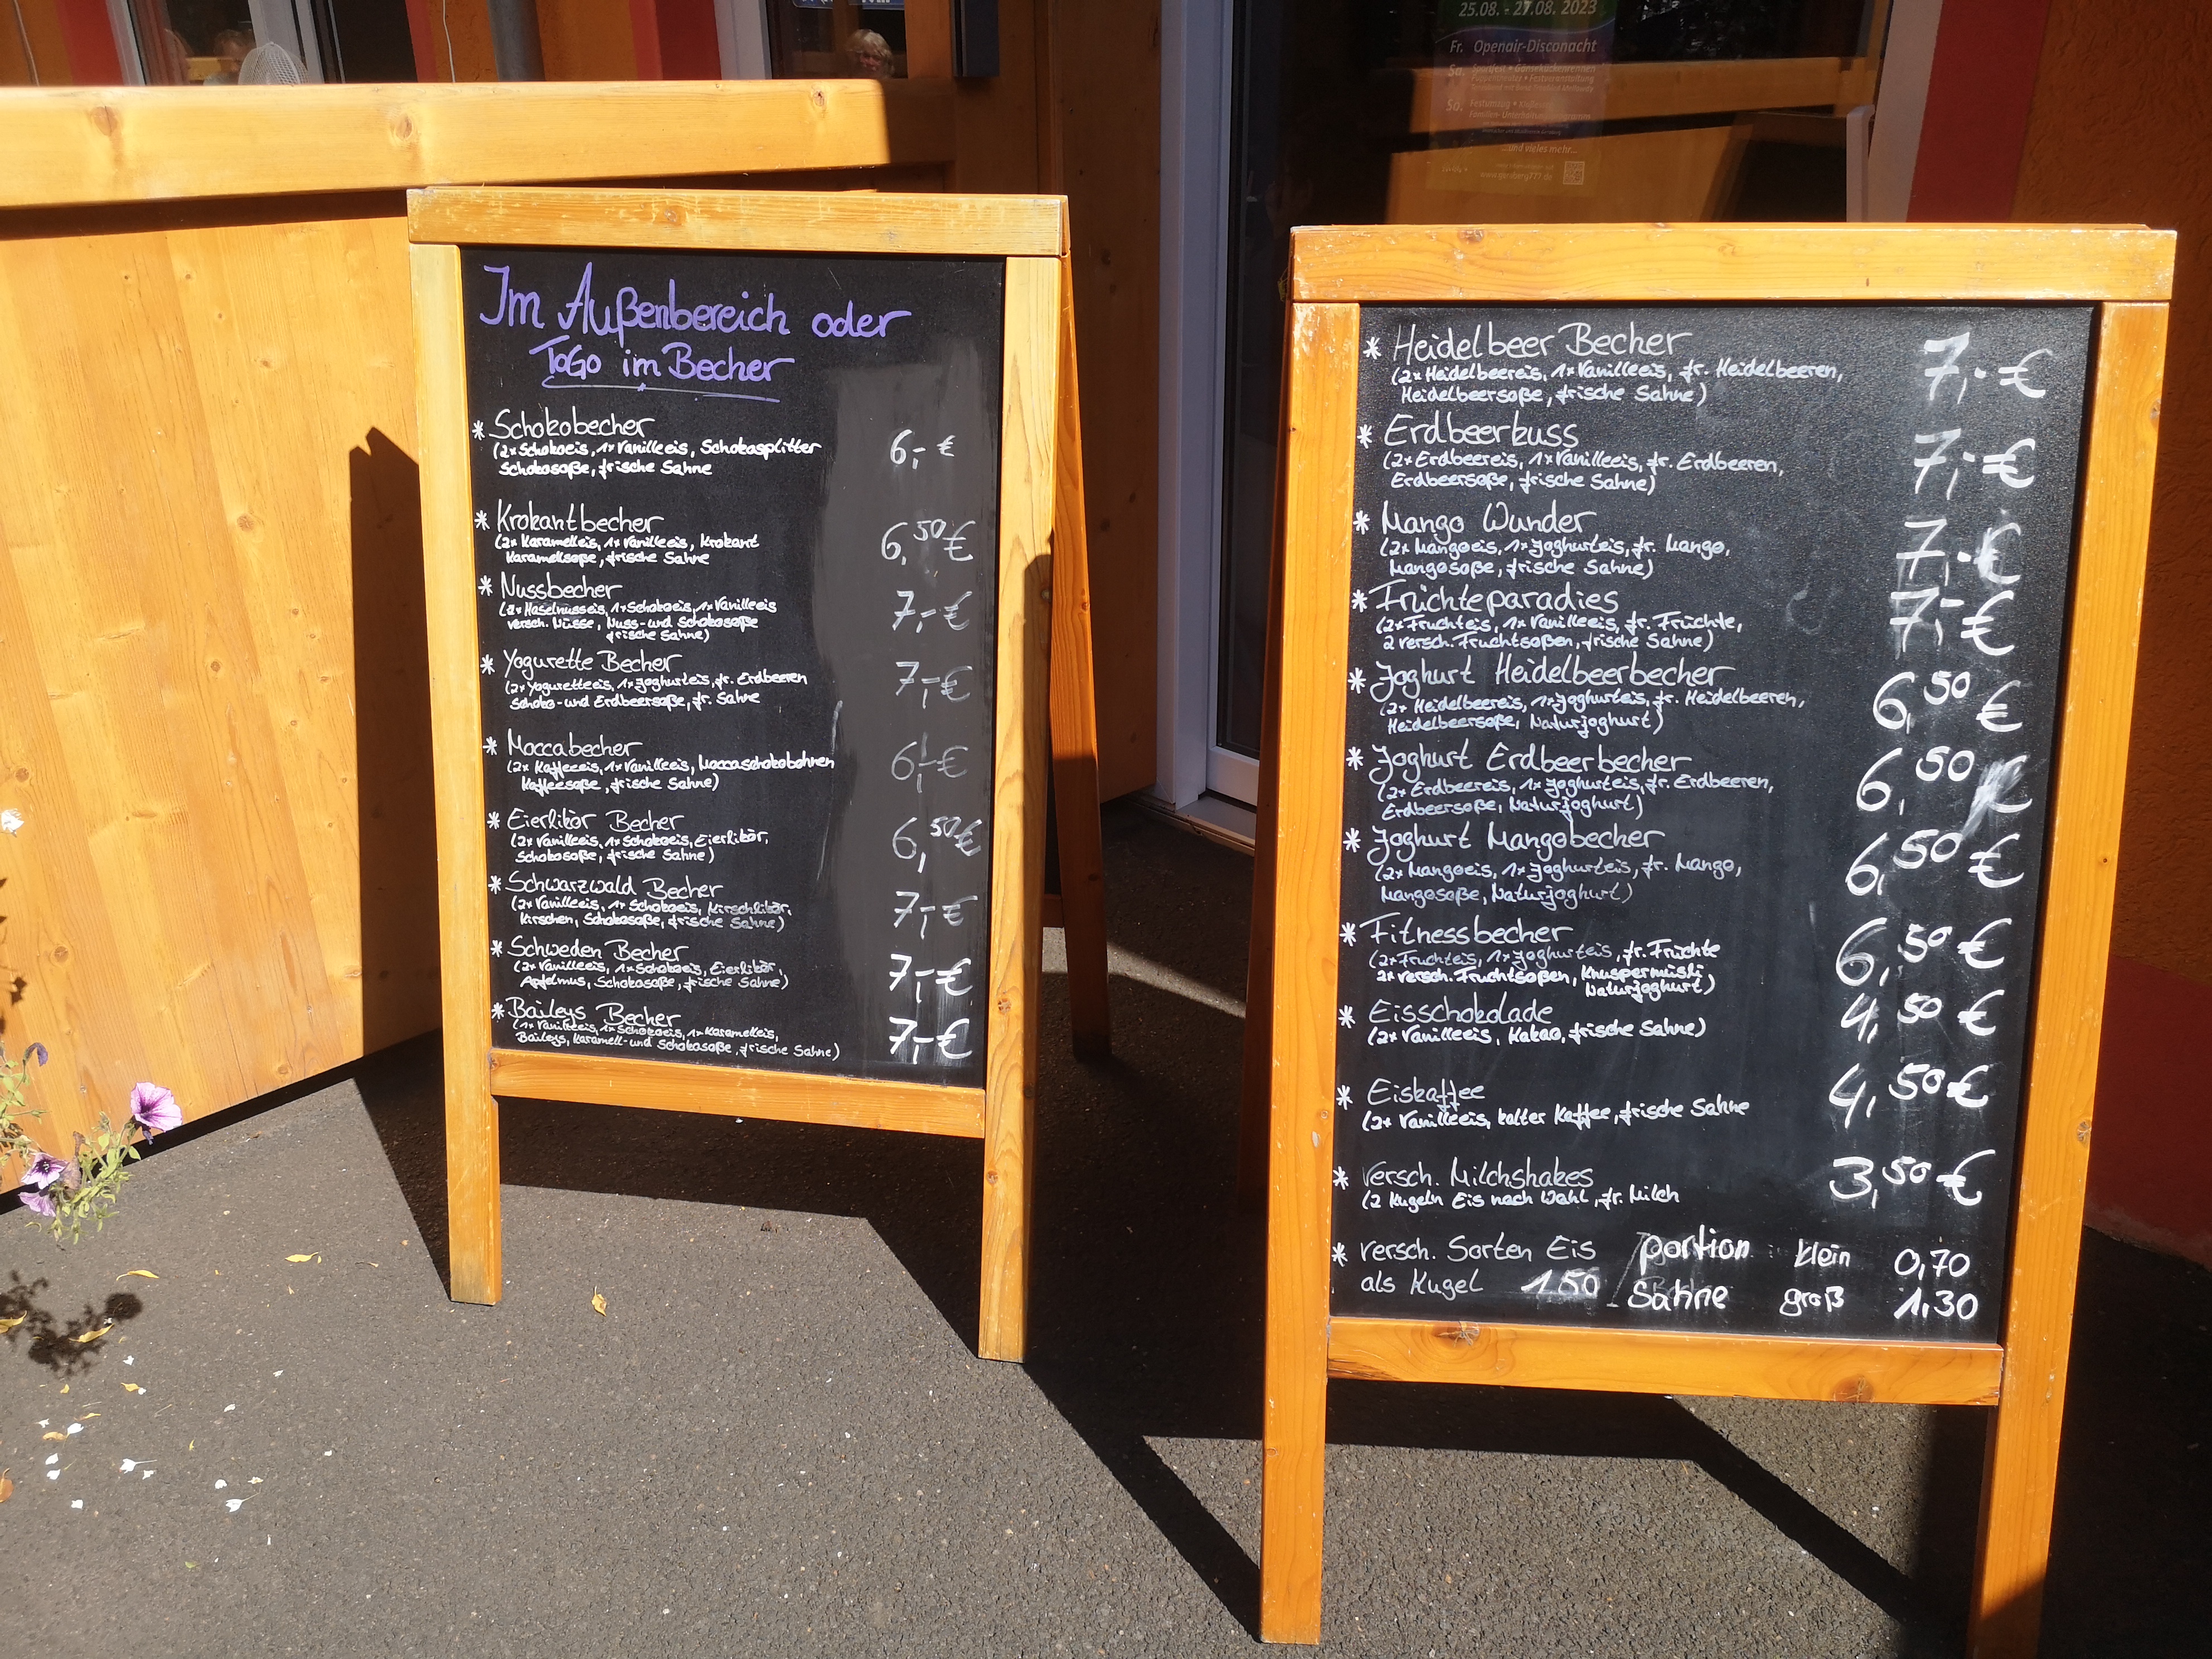 Im Außenbereich oder
ToGo im Becher
* Schokobecher 6,- €
(2x Schokoeis, 1x Vanilleeis, Schokosplitter
Schokosoße, frische Sahne
* Krokantbecher 6,50 €
(2x Karamelleis, 1x Vanilleeis, Krokant
Karamellsoße, frische Sahne
* Nussbecher 7,- €
(2x Haselnusseis, 1x Schokoeis, 1x Vanilleeis
versch. Nüsse, Nuss- und Schokosoße
frische Sahne)
* Yogurette Becher 7,- €
(2x Yoguretteeis, 1x Joghurteis, fr. Erdbeeren
Schoko- und Erdbeersoße, fr. Sahne
* Moccabecher 6,- €
(2x Kaffeeeis, 1x Vanilleeis, Moccaschokobohnen
Kaffeesoße, frische Sahne)
* Eierlikör Becher 6,50 €
(2x Vanilleeis, 1x Schokoeis, Eierlikör,
Schokosoße, frische Sahne)
* Schwarzwald Becher 7,- €
(2x Vanilleeis, 1x Schokoeis, Kirschlikör,
Kirschen, Schokosoße, frische Sahne)
* Schweden Becher 7,- €
(2x Vanilleeis, 1x Schokoeis, Eierlikör,
Apfelmus, Schokosoße, frische Sahne)
* Baileys Becher 7,- €
(1x Vanilleeis, 1x Schokoeis, 1x Karamelleis,
Baileys, Karamell- und Schokosoße, frische Sahne)
25.08. - 27.08. 2023
Fr. Openair-Disconacht
Sa.
So. Festumzug
...und vieles mehr...
* Heidelbeer Becher 7,- €
(2x Heidelbeereis, 1x Vanilleeis, fr. Heidelbeeren,
Heidelbeersoße, frische Sahne)
* Erdbeerkuss 7,- €
(2x Erdbeereis, 1x Vanilleeis, fr. Erdbeeren,
Erdbeersoße, frische Sahne)
* Mango Wunder 7,- €
(2x Mangoeis, 1x Joghurteis, fr. Mango,
Mangosoße, frische Sahne)
* Früchteparadies 7,- €
(2x Fruchteis, 1x Vanilleeis, fr. Früchte,
2 versch. Fruchtsoßen, frische Sahne)
* Joghurt Heidelbeerbecher 6,50 €
(2x Heidelbeereis, 1x Joghurteis, fr. Heidelbeeren,
Heidelbeersoße, Naturjoghurt)
* Joghurt Erdbeerbecher 6,50 €
(2x Erdbeereis, 1x Joghurteis, fr. Erdbeeren,
Erdbeersoße, Naturjoghurt)
* Joghurt Mangobecher 6,50 €
(2x Mangoeis, 1x Joghurteis, fr. Mango,
Mangosoße, Naturjoghurt)
* Fitnessbecher 6,50 €
(2x Fruchteis, 1x Joghurteis, fr. Früchte
2x versch. Fruchtsoßen, Knuspermüsli
Naturjoghurt)
* Eisschokolade 4,50 €
(2x Vanilleeis, Kakao, frische Sahne)
* Eiskaffee 4,50 €
(2x Vanilleeis, kalter Kaffee, frische Sahne
* versch. Milchshakes 3,50 €
(2 Kugeln Eis nach Wahl, fr. Milch
* versch. Sorten Eis portion klein 0,70
als Kugel 1.50 Sahne groß 1,30